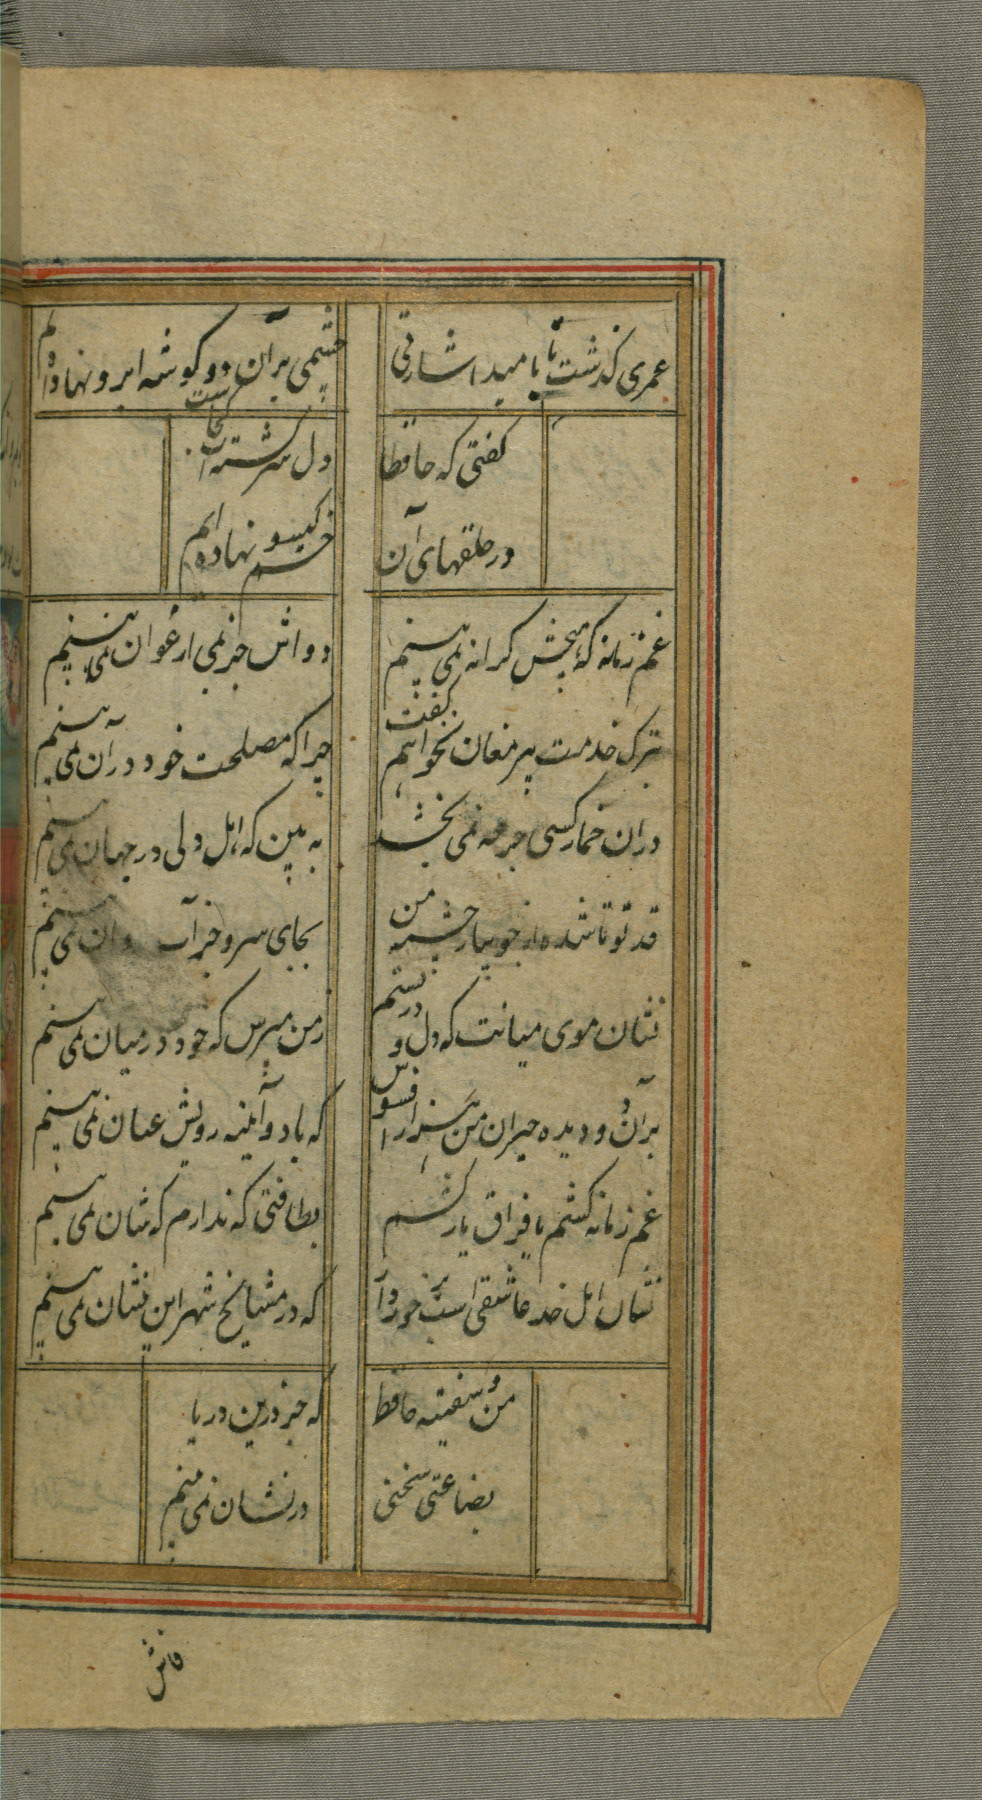 عمری گذشت تا بامید اشارتی
چشمی بر آن دو گوشه ابرو نهاده‌ایم
گفتی که حافظا
دل سرگشته‌ات کجاست
در حلقهای آن
خم گیسو نهاده ایم
غم زمانه که هیچش کرانه نمی بینم
دواش جز می ارغوان نمی بینم
بترک خدمت پیر مغان نخواهم گفت
چرا که مصلحت خود در آن نمی بینم
در ان خمار کسی جرعه نمی بخشد
به بین که اهل دلی در جهان نمی بینم
قد تو تا شده از جویبار چشمه من
بجای سرو جز آب روان نمی بینم
نشان موی میانت که دل درو بستم
زمن مپرس که خود در میان نمی بینم
بر آن دو دیده حیران من هزار افسوس
که با دو آینه رویش عیان نمی بینم
غم زمانه کشم یا فراق یار کشم
بطاقتی که ندارم که شان نمی بینم
نشان اهل خدا عاشقی است بر خود آر
که در مشایخ شهر این نشان نمی بینم
من و سفینه حافظ
که جز درین دریا
بضاعتی سخنی
درنشان نمی بینم
فاش